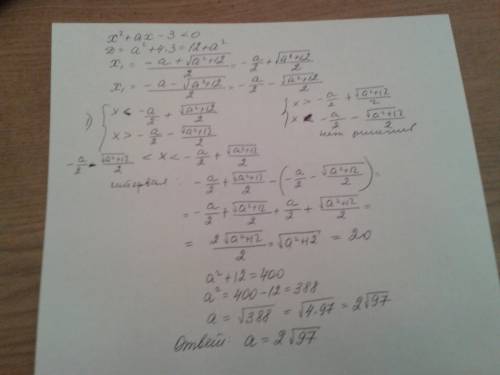 x² + ax - 3 < 0
D = a² + 4·3 = 12 + a²
x₁ = (-a + √(a²+12))/2 = -a/2 + √(a²+12)/2
x₁ = (-a - √(a²+12))/2 = -a/2 - √(a²+12)/2
1) { x < -a/2 + √(a²+12)/2
x > -a/2 - √(a²+12)/2
{ x > -a/2 + √(a²+12)/2
x < -a/2 - √(a²+12)/2
нет решения
-a/2 - √(a²+12)/2 < x < -a/2 + √(a²+12)/2
интервал: -a/2 + √(a²+12)/2 - (-a/2 - √(a²+12)/2) =
= -a/2 + √(a²+12)/2 + a/2 + √(a²+12)/2 =
= 2√(a²+12)/2 = √(a²+12) = 20
a² + 12 = 400
a² = 400 - 12 = 388
a = √388 = √4·97 = 2√97
Ответ: a = 2√97